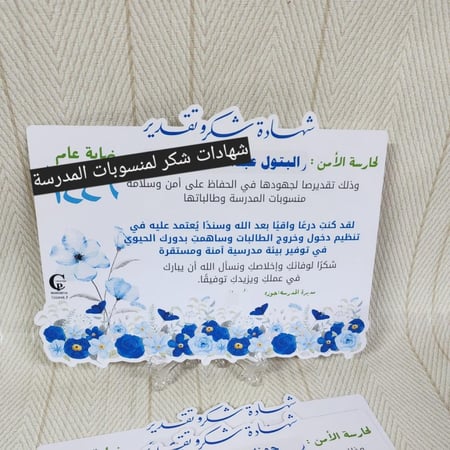 شهادة شكر وتقدير
شهادات شكر لمنسوبات المدرسة
لحارسة الأمن : البتول
نهاية عام
وذلك تقديرا لجهودها في الحفاظ على أمن وسلامة
منسوبات المدرسة وطالباتها
لقد كنتِ درعًا واقيًا بعد الله وسندًا يُعتمد عليه في
تنظيم دخول وخروج الطالبات وساهمتِ بدورك الحيوي
في توفير بيئة مدرسية آمنة ومستقرة
شكرًا لوفائكِ وإخلاصكِ ونسأل الله أن يبارك
في عملكِ ويزيدكِ توفيقًا.
مديرة المدرسة:
شهادة شكر وتقدير
شهادة شكر وتقدير
لحارسة الأمن :